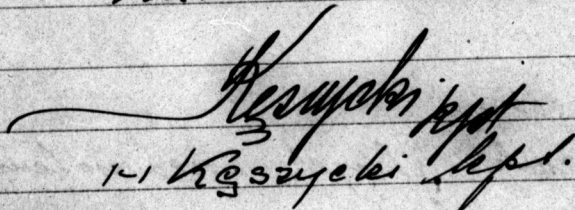 Kęszycki kpt
/-/ Kęszycki kpt.